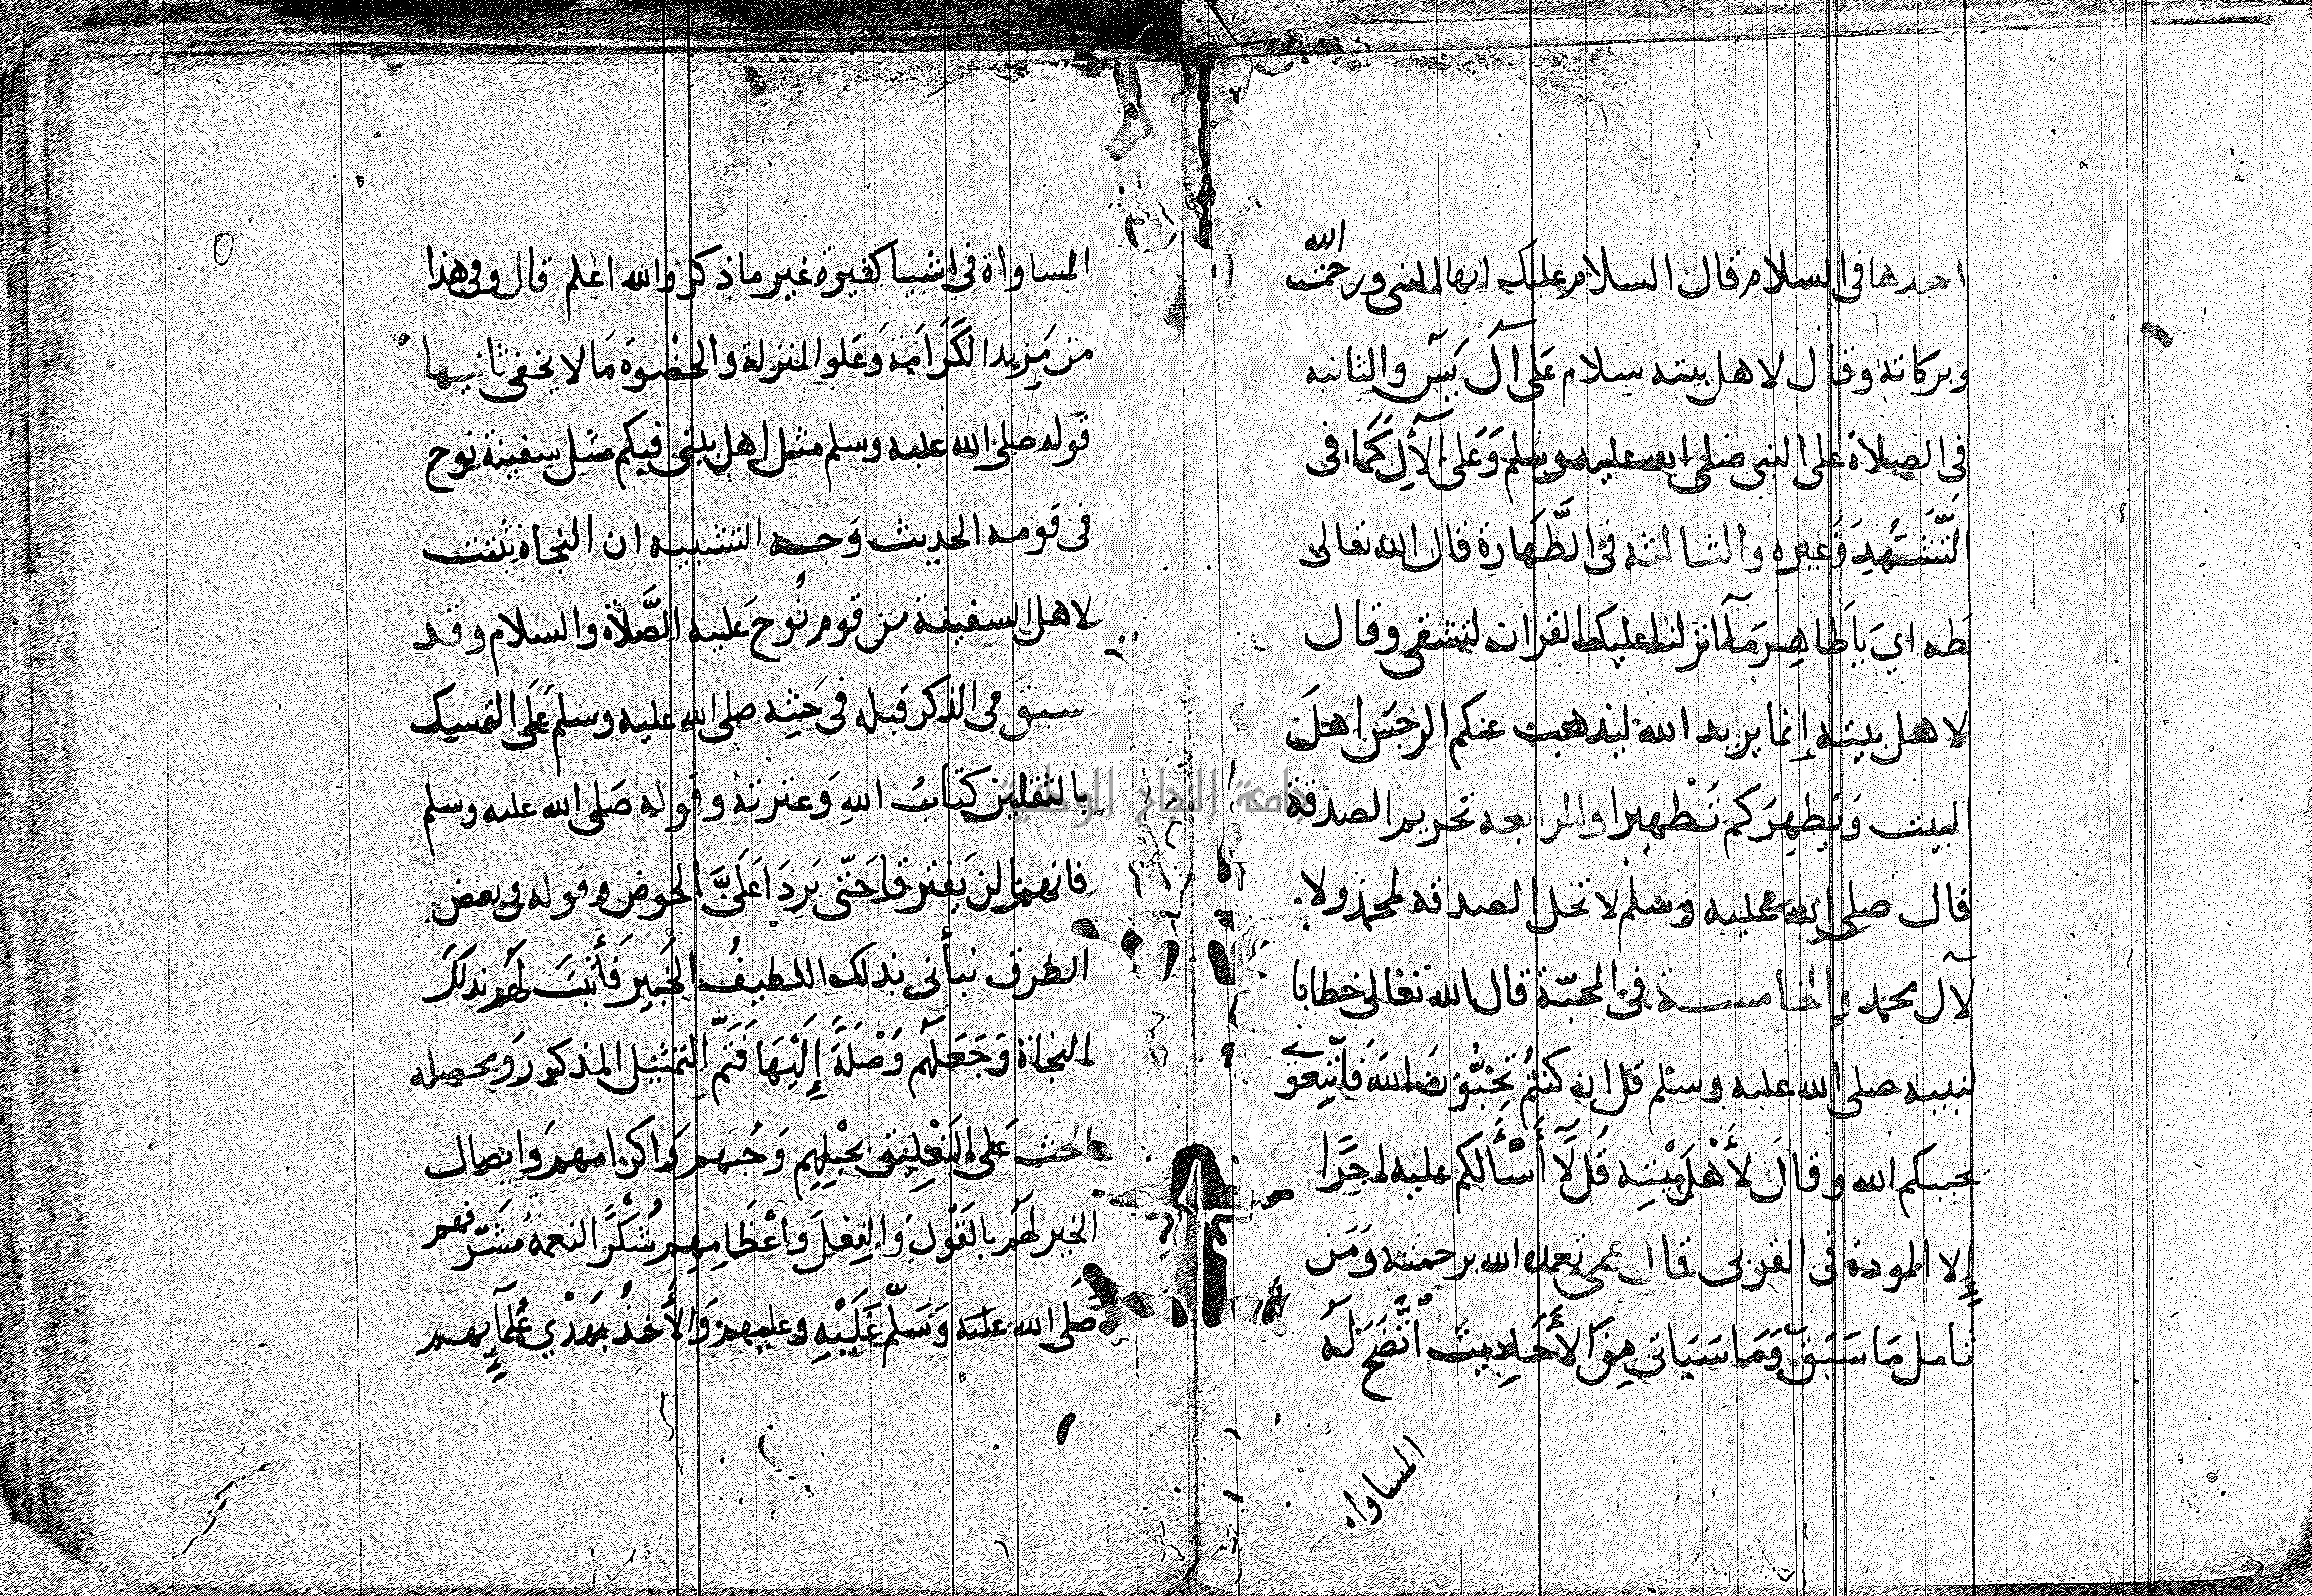 احدها في السلام قال السلام عليك ايها النبي ورحمت الله
وبركاته وقال لاهل بيته سلام على آل يس والثانيه
في الصلاة على النبي صلى الله عليه وسلم وعلى الآل كما في
التَّشَهُّدِ وَغيره والثالثه في الطَّهَارة قال الله تعالى
طه اي يا طاهر مآ انزلنا عليك القران لتشقى وقال
لاهل بيته إنما يريد الله ليذهب عنكم الرجس اهل
البيت وَيطهركم تَطْهيرا والرابعه تحريم الصدقة
قال صلى الله عليه وسلم لا تحل الصدقه لمحمد ولا
لآل محمد والخامسة في المحبّة قال الله تعالى خطابا
لنبيه صلى الله عليه وسلم قل ان كنتُم تحبُّون الله فاتبعوني
يحببكم الله وقال لأَهْل بيْتِه قل لآ أَسْأَلكم عليه اجرًا
إِلا المودة في القربى قال عمى تغمده الله برحمته وَمَن
تامل مَا سَبَقَ وَمَا سَيَاتي مِنَ الأَحَادِيث اتَّضَح له
المساواه
المساواة في اشيا كثيرة غير ما ذكر والله اعلم قال وفي هذا
من مَزِيد الكَرَامَة وَعَلو المنزلة والحضْوة مَا لا يخفى ثانيها
قوله صلى الله عليه وسلم مثل اهل بيتي فيكم مثل سفينة نوح
في قومه الحديث وَجه التشبيه ان النجاة ثبتت
لاهل السفينة من قوم نُوح عَليه الصَّلاَة والسلام وقد
سبق في الذكر قبله في حَثِه صلى الله عليه وسلم عَلَى التمسك
بالثقلين كتابُ اللهِ وَعترته وقوله صَلى الله عليه وسلم
فانهمَا لن يَفترقا حَتّى يَرِدَا عَلَيَّ الحوض وقوله في بعض
الطرق نبأني بذلك اللطيفُ الخَبير فَأَثبَتَ لَهم بذلكَ
النجاة وَجَعَلَهُم وَصْلَةً إِلَيْهَا فَتَمّ التمثيل المذكور وَمحصله
الحث عَلى التعْلِيق بحَبْلِهِم وَحُبهم وَاكرامهم وَايصال
الخير لَهُم بالقَوْل وَالفِعْلَ وَاعْظَامِهِم شُكْرًا لنعمة مُشَرّفهم
صَلى الله عليه وَسَلّم عَلَيْهِ وعليهم وَالأَخذْ بهَدْي عُلَمَآئِهم